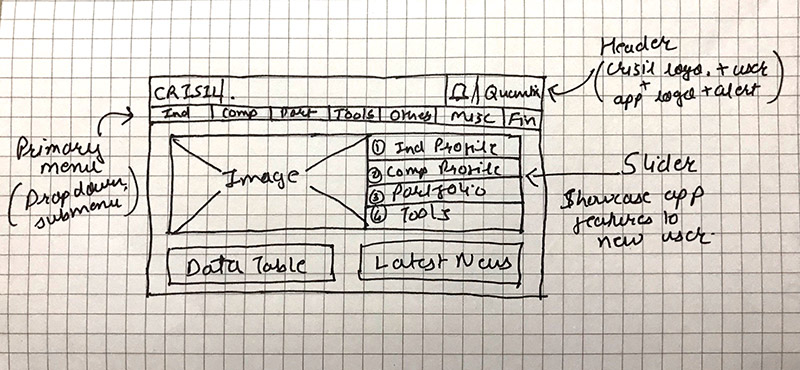 Header
(Crisil logo, + user
+
app logo + alert)
CRISIL
Quantix
Ind Comp Port Tools Others Misc Fin
Primary
menu
(Dropdown,
submenu)
Image
① Ind Profile
② Comp Profile
③ Portfolio
④ Tools
Slider
Showcase app
features to
new user.
Data Table
Latest News